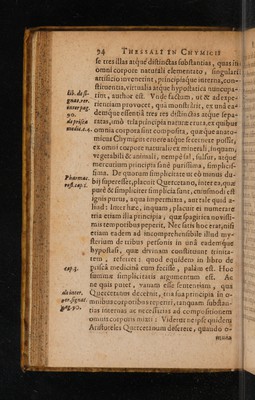 94 THESSALI IN CHYMICIS
se tres illas atque distinctas substantias, quas in
omni corpore naturali elementato, singulari
artificio invenerint, principiaque interna, con-
stituentia, virtualia atque hypostatica nuncupa-
rim, author est. Vnde factum, ut & ad expe-
rientiam provocet, quâ monstrârit, ex unâ ea-
demque essentiâ tres res distinctas atque sepa-
ratas, imò tria principia naturæ erui: ex quibus
omnia corpora sint composita, quæque anato-
micus Chymicus eruere atque secernere possit,
ex omni corpore naturali: ex minerali, inquam,
vegetabili & animali, nempè sal, sulfur, atque
mercurium principia sanè purissima, simplicis-
sima. De quorum simplicitate ut eò minus du-
bij superesset, placuit Quercetano, inter ea, quæ
purè & simpliciter simplicia sunt, cujusmodi est
ignis purus, aqua impermixta, aut tale quid a-
liud: Inter hæc, inquam, placuit ei numerare
tria etiam illa principia, quæ spagirica novissi-
mis temporibus peperit. Nec satis hoc erat, nisi
etiam eadem ad incomprehensibile illud my-
sterium de tribus personis in unâ eademque
hypostasi, quæ divinam constituunt trinita-
tem, referret: quod equidem in libro de
priscâ medicinâ eum fecisse, palàm est: Hoc
summæ simplicitatis argumentum est. At
ne quis putet, vanam esse sententiam, quâ
Quercetanus decernit, tria sua principia in o-
mnibus corporibus reperiri, tanquam substan-
tias internas ac necessarias ad compositionem
omnis corporis mixti: Videtur ne ipse quidem
Aristoteles Quercetanum deserere, quando o-
mnia
lib. de si-
gnat. rer.
inter. pag.
90.
de prisca
medic. c.4.
Pharmac.
rest. cap. 1.
cap. 4.
de inter.
rer. signat.
pag. 90.